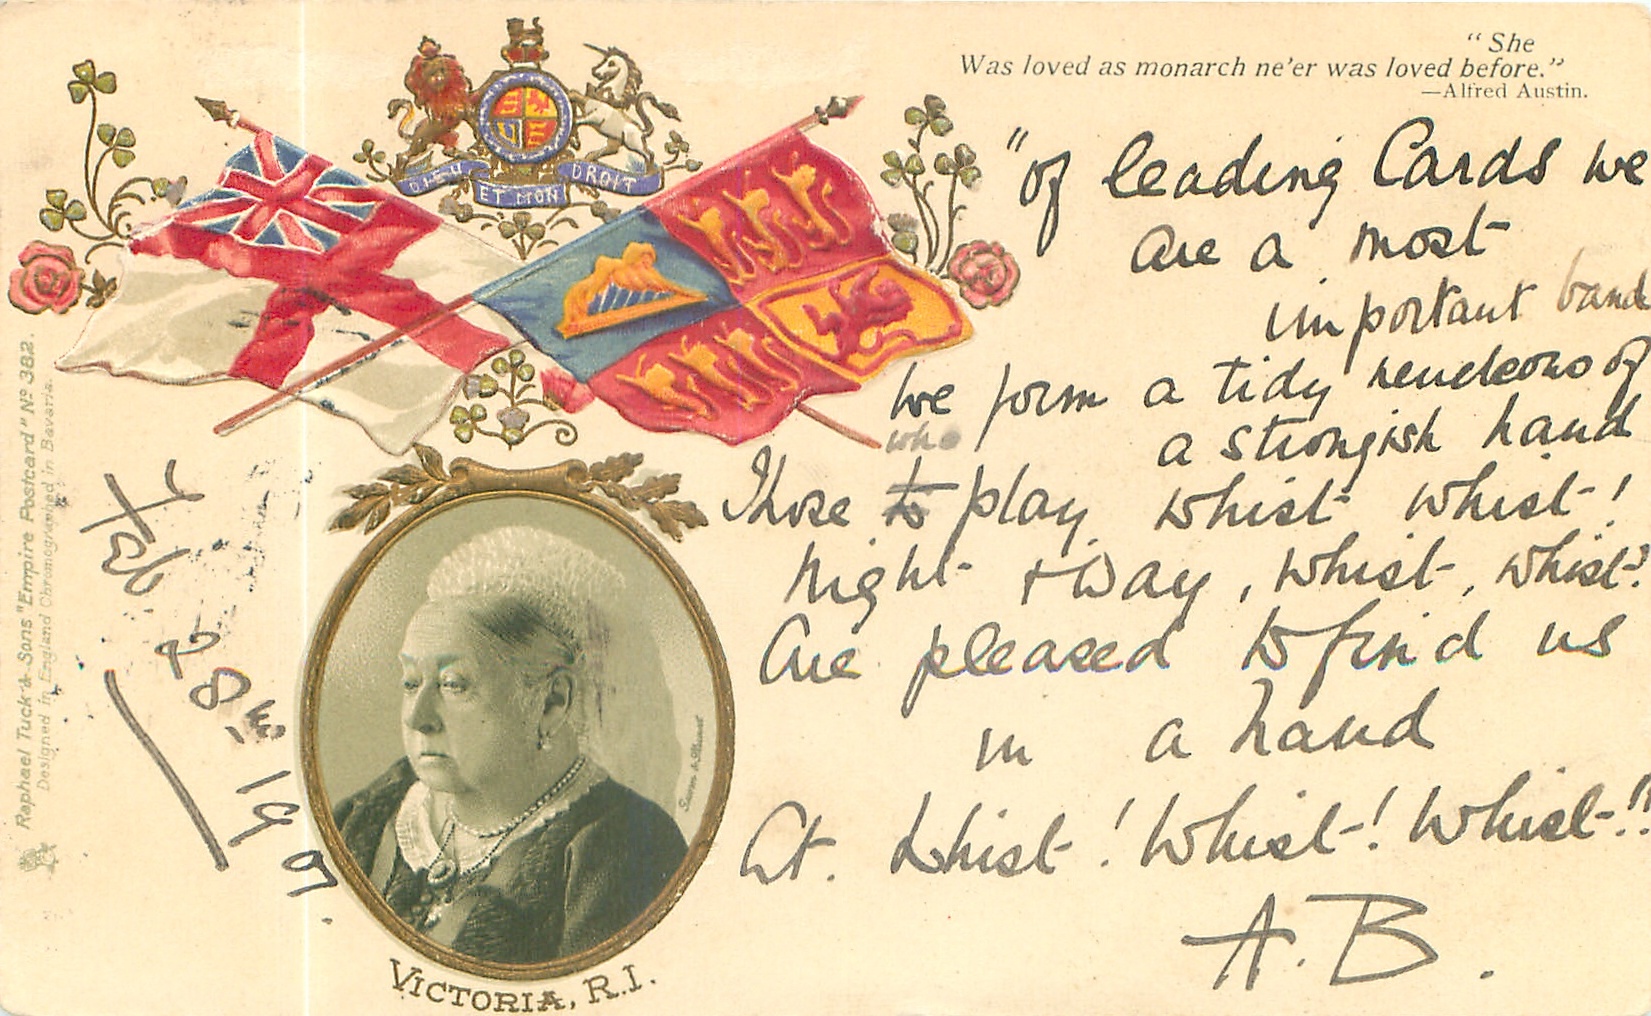 "She
Was loved as monarch ne'er was loved before."
—Alfred Austin.
DIEU ET MON DROIT
"Of leading Cards we
are a most
important band
We form a tidy of
a strongish hand
who
Those to play whist whist!
Night + Day, whist, whist!
Are pleased to find us
in a hand
At. Whist! Whist! Whist!"
A.B.
Feb 28th 1901.
Raphael Tuck & Sons "Empire Postcard" No 382.
Designed in England Chromographed in Bavaria.
VICTORIA, R.I.